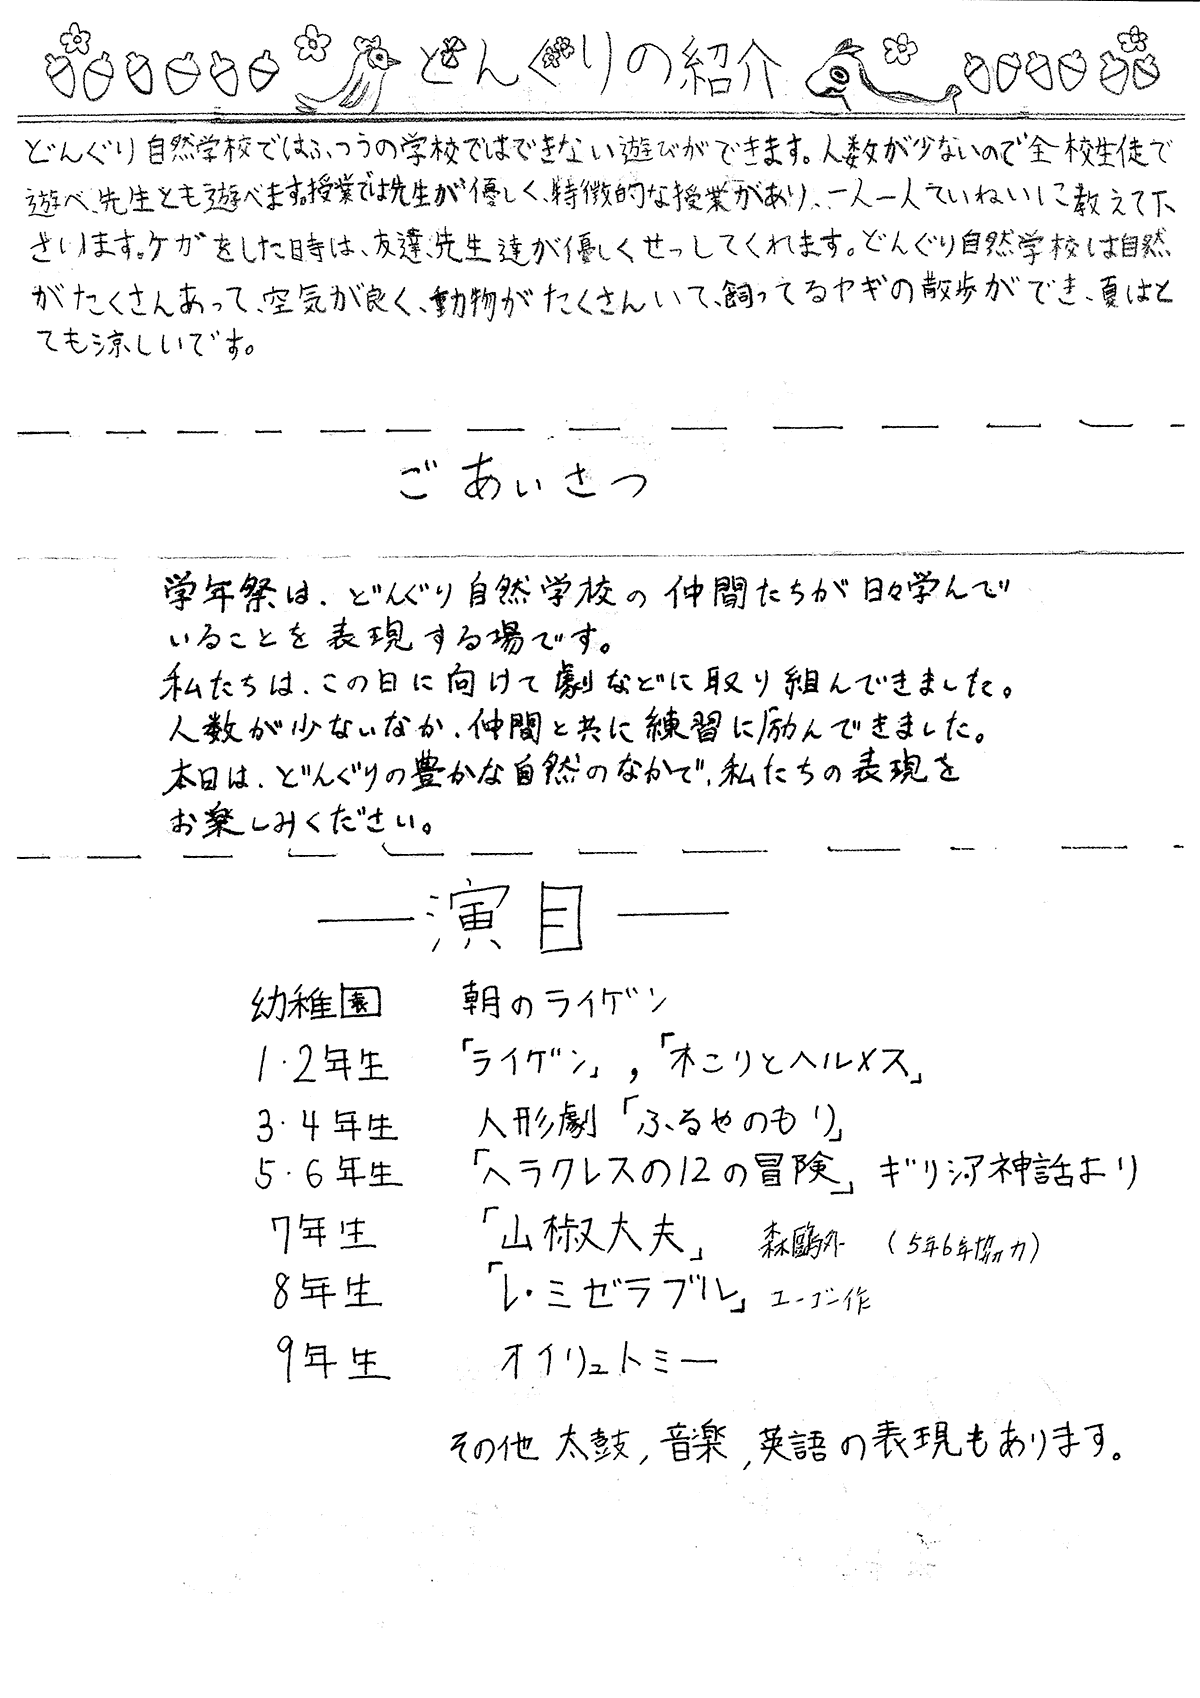 どんぐりの紹介
どんぐり自然学校ではふつうの学校ではできない遊びができます。人数が少ないので全校生徒で
遊べ、先生とも遊べます。授業では先生が優しく、特徴的な授業があり、一人一人ていねいに教えて下
さいます。ケガをした時は、友達、先生達が優しくせっしてくれます。どんぐり自然学校は自然
がたくさんあって、空気が良く、動物がたくさんいて、飼ってるヤギの散歩ができ、夏はと
ても涼しいです。
ごあいさつ
学年祭は、どんぐり自然学校の仲間たちが日々学んで
いることを表現する場です。
私たちは、この日に向けて劇などに取り組んできました。
人数が少ないなか、仲間と共に練習に励んできました。
本日は、どんぐりの豊かな自然のなかで、私たちの表現を
お楽しみください。
演目
幼稚園 朝のライゲン
1・2年生 「ライゲン」,「木こりとヘルメス」
3・4年生 人形劇「ふるやのもり」
5・6年生 「ヘラクレスの12の冒険」ギリシア神話より
7年生 「山椒大夫」 森鷗外 (5年6年協力)
8年生 「レ・ミゼラブル」ユーゴー作
9年生 オイリュトミー
その他 太鼓,音楽,英語の表現もあります。